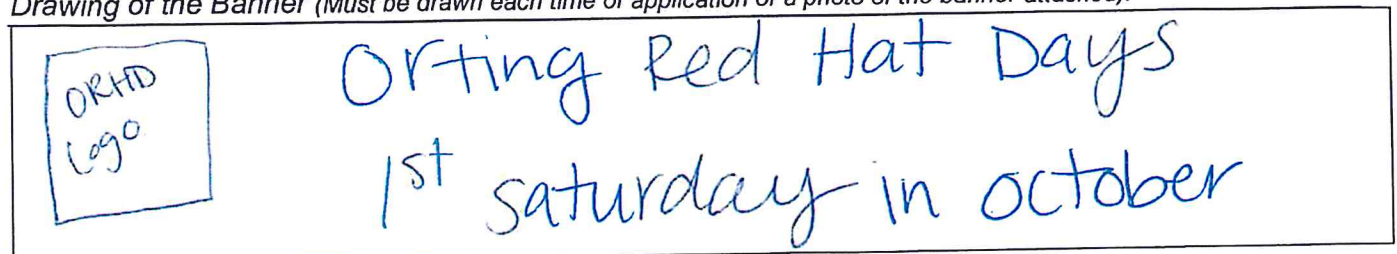 Drawing of the Banner (Must be drawn each time of application or a photo of the banner attached).
ORHD
Logo
Orting Red Hat Days
1st saturday in october